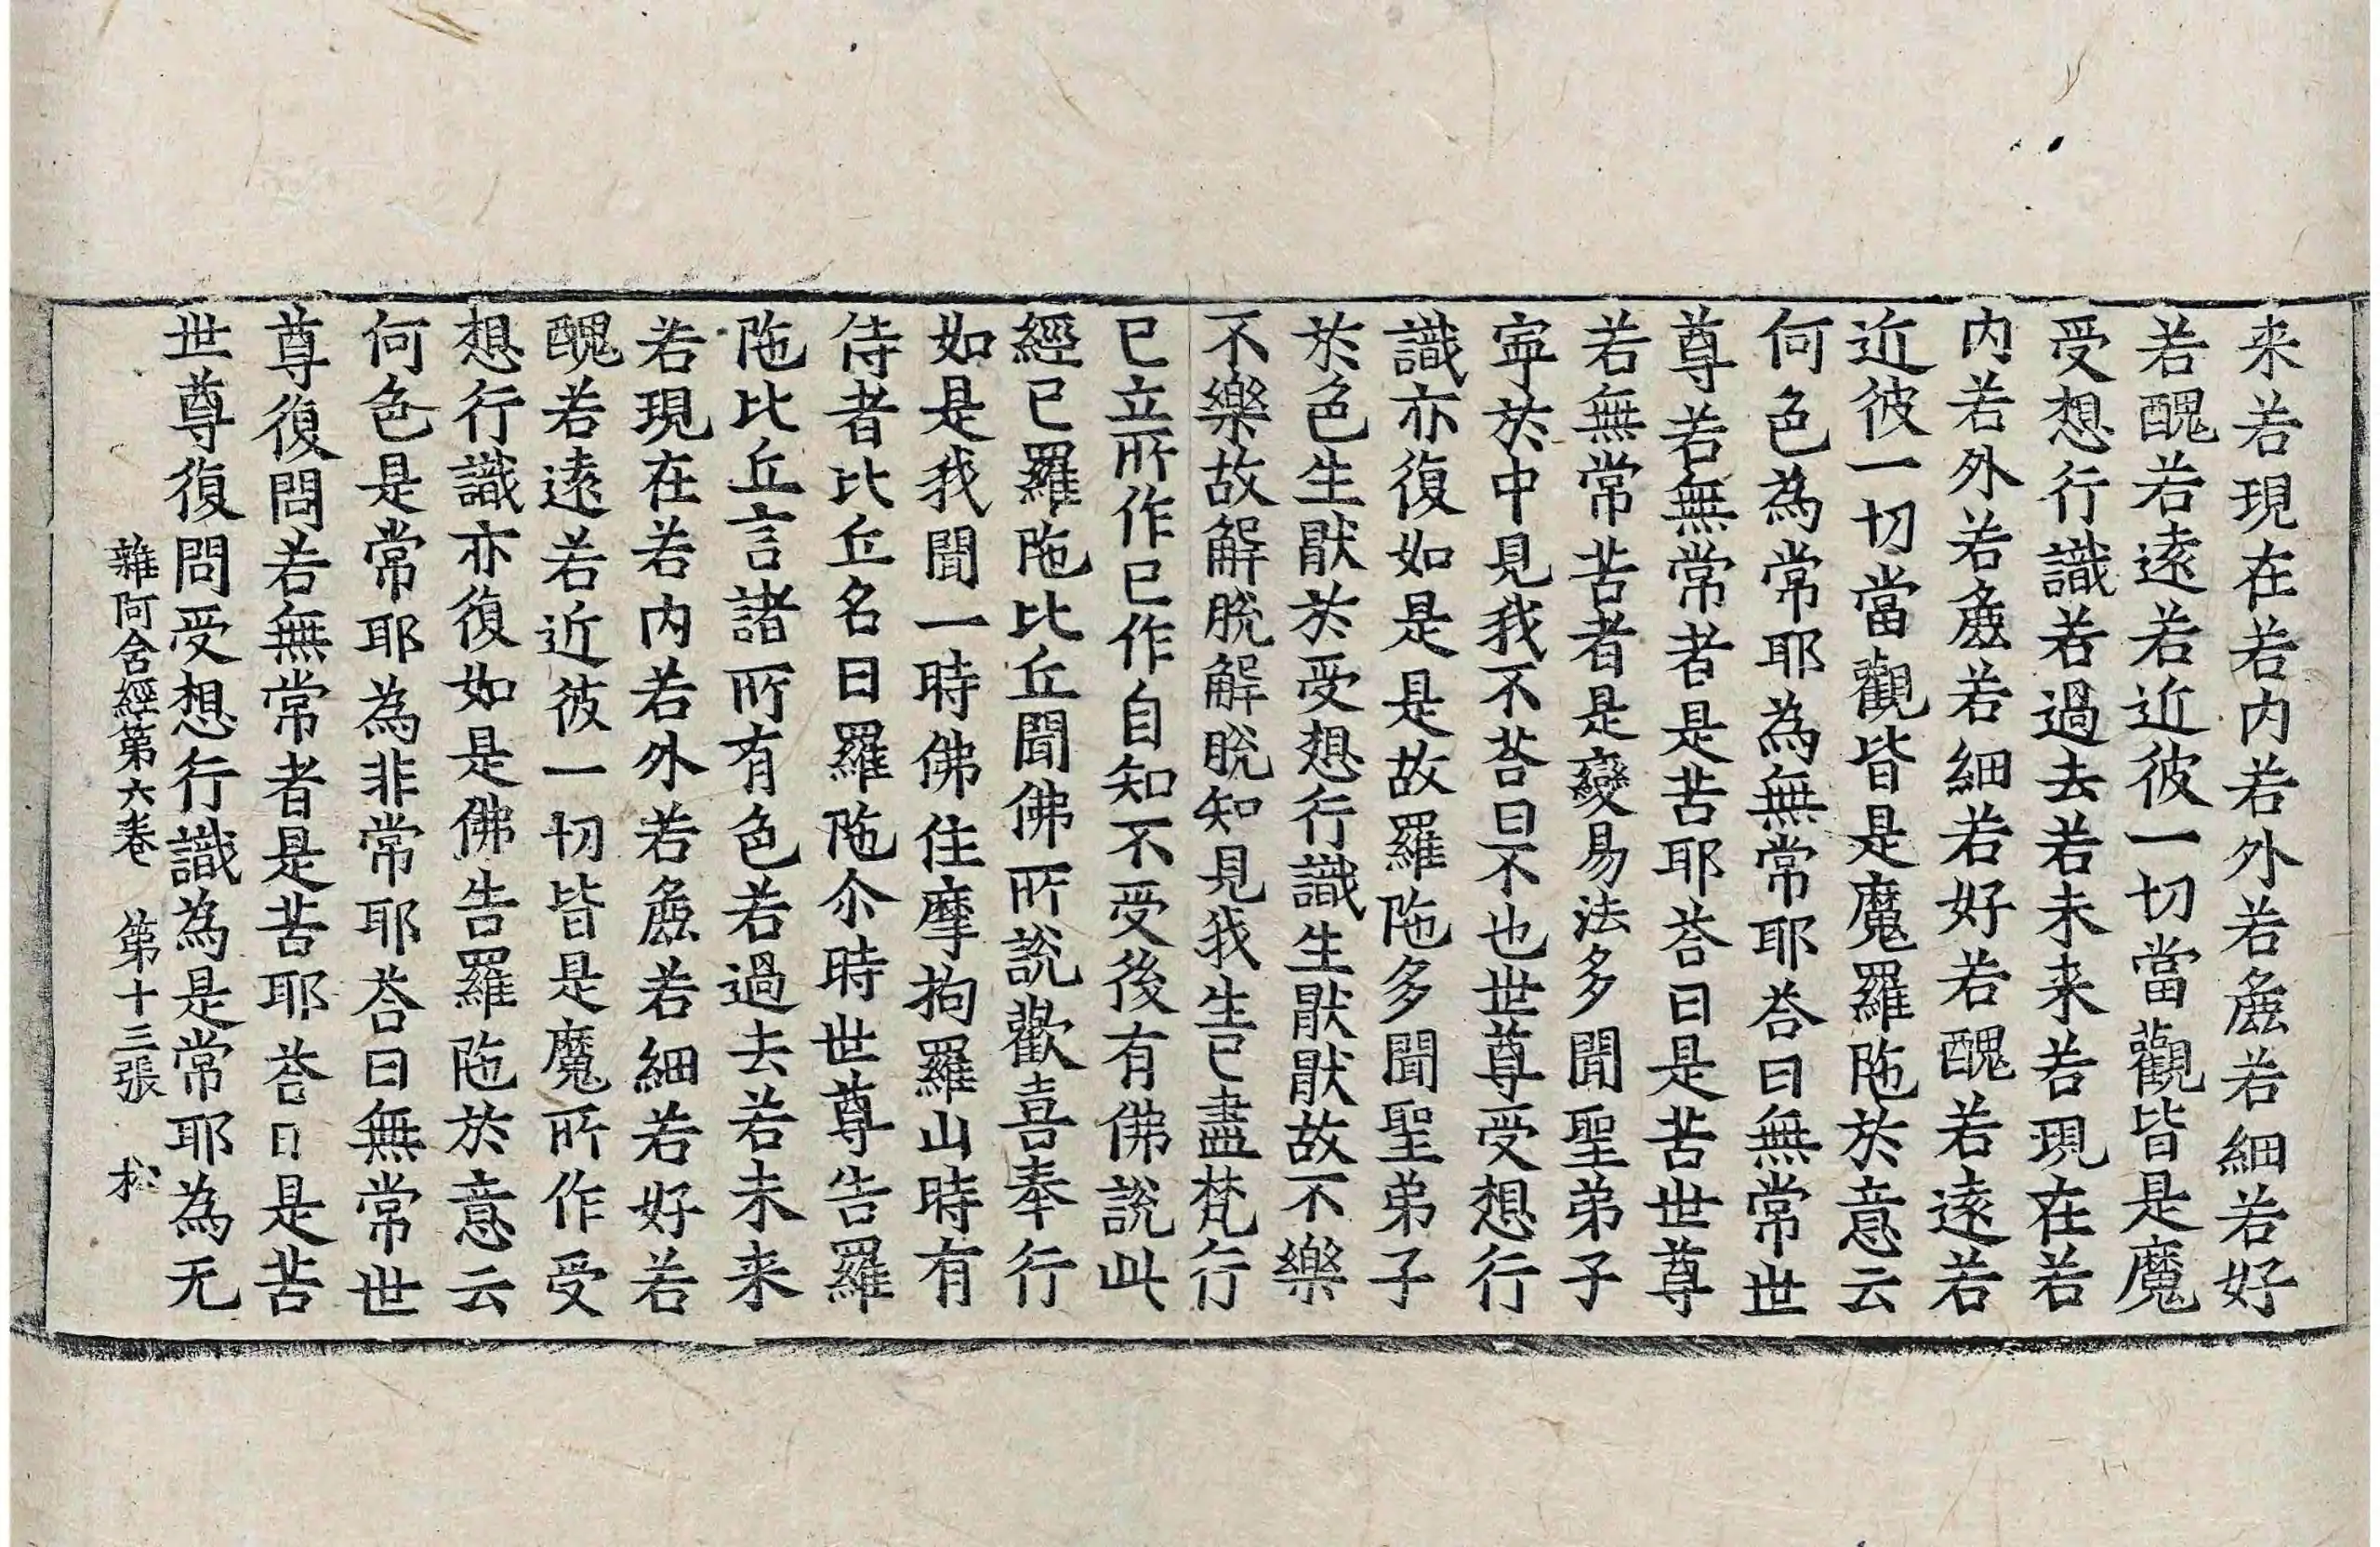 来若現在若内若外若麁若細若好
若醜若逺若近彼一切當觀皆是魔
受想行識若過去若未来若現在若
内若外若麁若細若好若醜若逺若
近彼一切當觀皆是魔羅陁於意云
何色為常耶為無常耶荅曰無常世
尊若無常者是苦耶荅曰是苦世尊
若無常苦者是變易法多聞聖弟子
寧於中見我不荅曰不也世尊受想行
識亦復如是是故羅陁多聞聖弟子
於色生猒於受想行識生猒猒故不樂
不樂故解脫解脫知見我生已盡梵行
已立所作已作自知不受後有佛說此
經已羅陁比丘聞佛所說歡喜奉行
如是我聞一時佛住摩拘羅山時有
侍者比丘名曰羅陁尒時世尊告羅
陁比丘言諸所有色若過去若未来
若現在若内若外若麁若細若好若
醜若逺若近彼一切皆是魔所作受
想行識亦復如是佛告羅陁於意云
何色是常耶為非常耶荅曰無常世
尊復問若無常者是苦耶荅曰是苦
世尊復問受想行識為是常耶為无
雜阿含經第六卷 第十三張 松